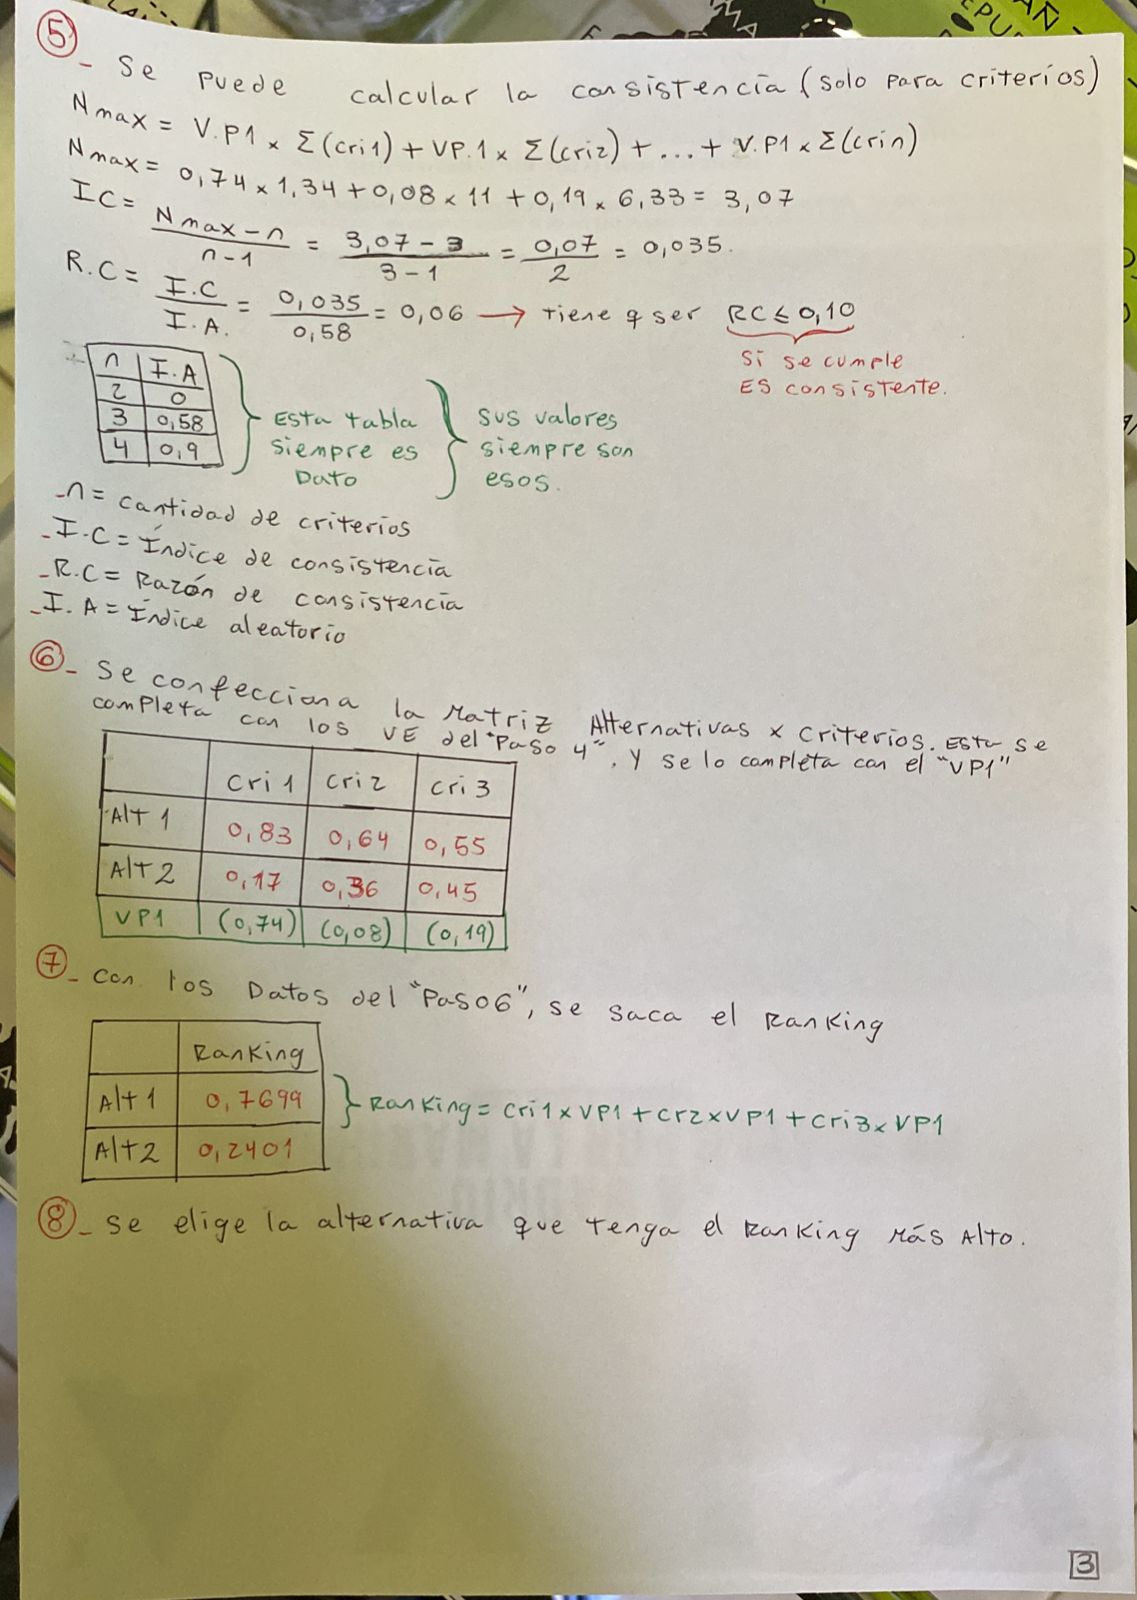 5 - Se puede calcular la consistencia (solo para criterios)
Nmax = V.P1 x Σ(cri1) + VP.1 x Σ(cri2) + ... + V.P1 x Σ(crin)
Nmax = 0,74 x 1,34 + 0,08 x 11 + 0,19 x 6,33 = 3,07
IC = Nmax - n / n - 1 = 3,07 - 3 / 3 - 1 = 0,07 / 2 = 0,035.
R.C = I.C / I.A. = 0,035 / 0,58 = 0,06 → tiene q ser RC ≤ 0,10
Si se cumple
ES consistente.
n I.A
2 0
3 0,58
4 0,9
Esta tabla
siempre es
Dato
sus valores
siempre son
esos.
- n = cantidad de criterios
- I.C = Índice de consistencia
- R.C = Razón de consistencia
- I.A = Índice aleatorio
6 - Se confecciona la Matriz Alternativas x criterios. Esta se
completa con los VE del "Paso 4", y se lo completa con el "VP1"
Cri 1 Cri 2 Cri 3
Alt 1 0,83 0,64 0,55
Alt 2 0,17 0,36 0,45
VP1 (0,74) (0,08) (0,19)
7 - Con los Datos del "Paso6", se saca el Ranking
Ranking
Alt 1 0,7699
Alt 2 0,2401
Ranking = cri1 x VP1 + cr2 x VP1 + cri3 x VP1
8 - Se elige la alternativa que tenga el Ranking Más Alto.
3